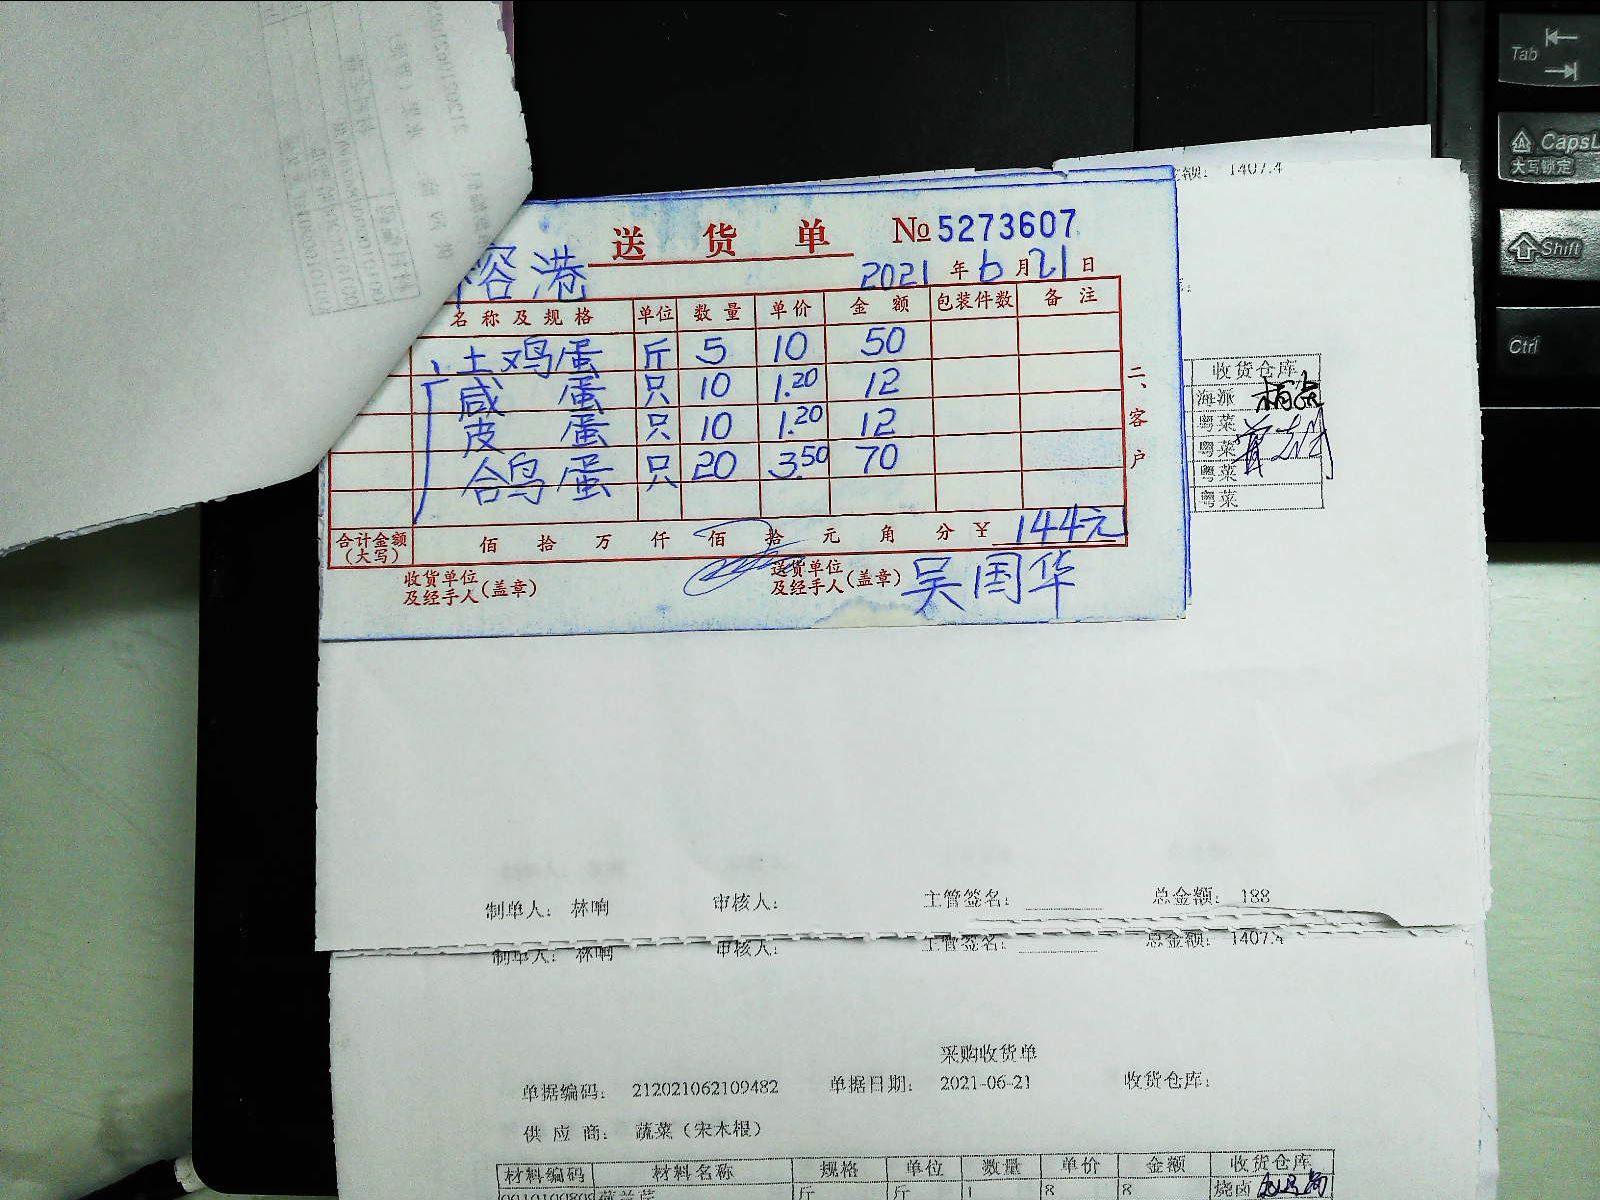 Tab
CapsL
大写锁定
Shift
Ctrl
额： 1407.4
送货单 № 5273607
容港
2021 年 6 月 21 日
名称及规格 单位 数量 单价 金额 包装件数 备注
土鸡蛋 斤 5 10 50
咸蛋 只 10 1.20 12
皮蛋 只 10 1.20 12
合鸟蛋 只 20 3.50 70
合计金额（大写） 佰 拾 万 仟 佰 拾 元 角 分 ¥ 144元
二、客户
收货单位及经手人（盖章） 送货单位及经手人（盖章） 吴国华
收货仓库
海派
粤菜
粤菜
粤菜
粤菜
制单人： 林响 审核人： 主管签名： 总金额： 188
制单人： 林响 审核人： 主管签名： 总金额： 1407.4
采购收货单
单据编码： 212021062109482 单据日期： 2021-06-21 收货仓库：
供应商： 蔬菜（宋木根）
材料编码 材料名称 规格 单位 数量 单价 金额 收货仓库
斤 斤 1 8 8 烧卤